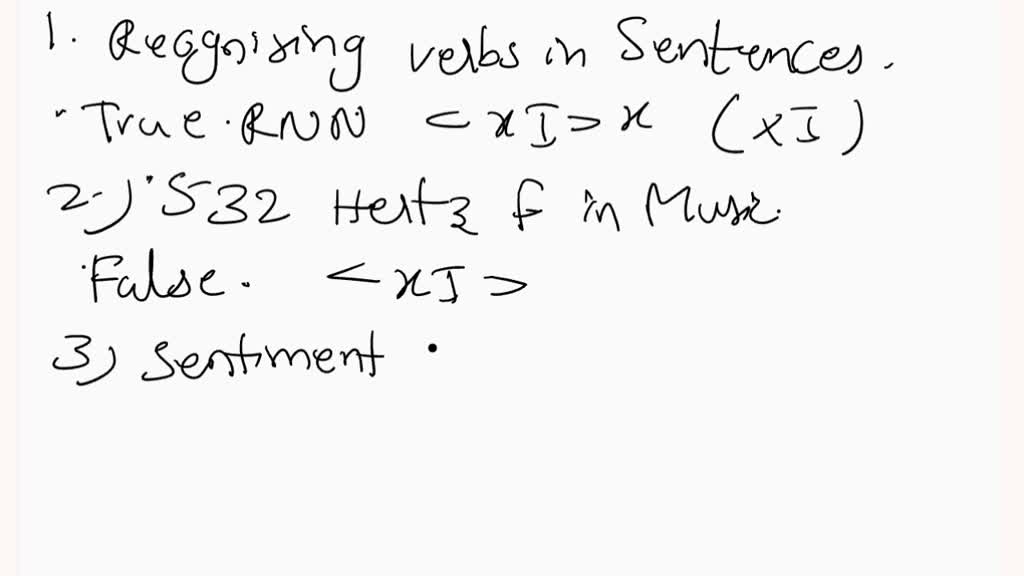 1. Recgnising verbs in Sentences.
True. RNN <xI>x (xI)
2.) 532 Hertz f in Music.
False. <xI>
3) sentiment